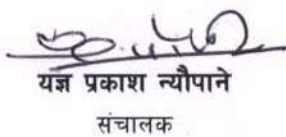 यज्ञ प्रकाश न्यौपाने
संचालक